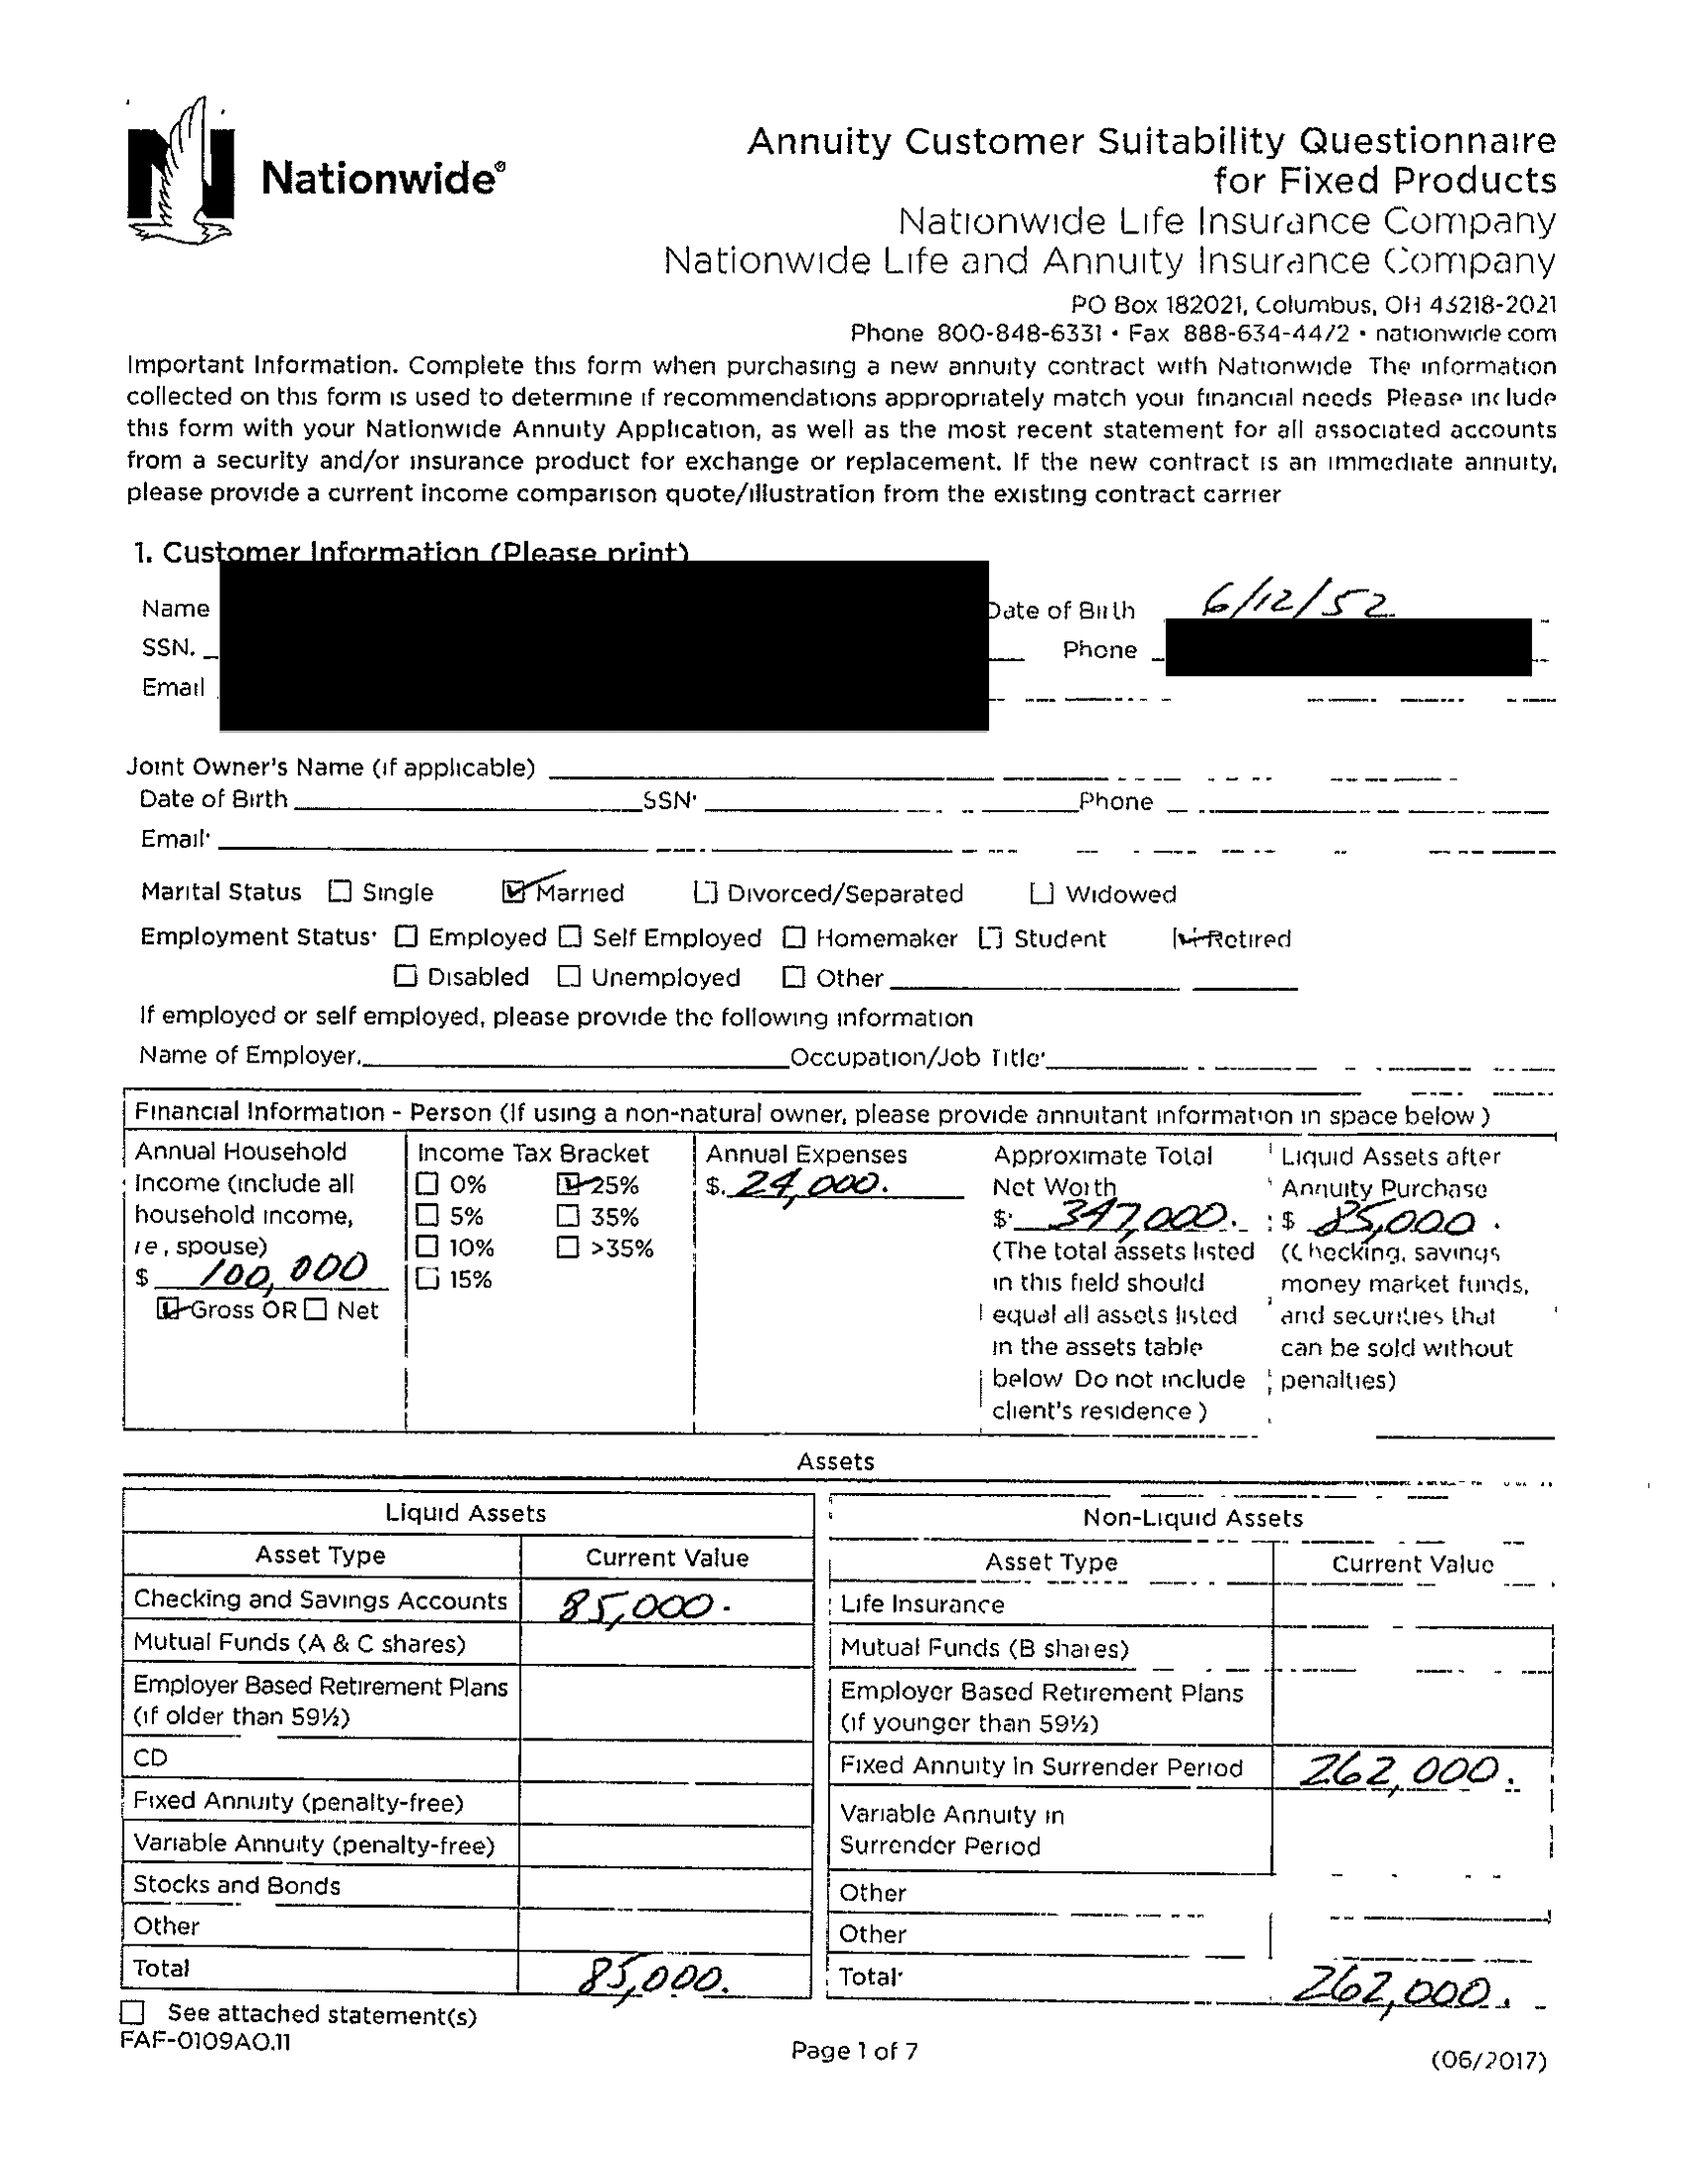 Nationwide®
Annuity Customer Suitability Questionnaire
for Fixed Products
Nationwide Life Insurance Company
Nationwide Life and Annuity Insurance Company
PO Box 182021, Columbus, OH 43218-2021
Phone 800-848-6331 • Fax 888-634-4472 • nationwide com
Important Information. Complete this form when purchasing a new annuity contract with Nationwide The information
collected on this form is used to determine if recommendations appropriately match your financial needs Please include
this form with your Nationwide Annuity Application, as well as the most recent statement for all associated accounts
from a security and/or insurance product for exchange or replacement. If the new contract is an immediate annuity,
please provide a current income comparison quote/illustration from the existing contract carrier
1. Customer Information (Please print)
Name Date of Birth 6/12/52
SSN. Phone
Email
Joint Owner's Name (if applicable)
Date of Birth SSN Phone
Email
Marital Status ☐ Single ☑ Married ☐ Divorced/Separated ☐ Widowed
Employment Status ☐ Employed ☐ Self Employed ☐ Homemaker ☐ Student ☑ Retired
☐ Disabled ☐ Unemployed ☐ Other
If employed or self employed, please provide the following information
Name of Employer. Occupation/Job Title
Financial Information - Person (If using a non-natural owner, please provide annuitant information in space below)
Annual Household
Income (include all
household income,
ie, spouse)
$ 100,000
☑ Gross OR ☐ Net
Income Tax Bracket
☐ 0% ☑ 25%
☐ 5% ☐ 35%
☐ 10% ☐ >35%
☐ 15%
Annual Expenses
$. 24,000.
Approximate Total
Net Worth
$ 347,000.
(The total assets listed
in this field should
equal all assets listed
in the assets table
below Do not include
client's residence)
Liquid Assets after
Annuity Purchase
$ 85,000.
(Checking, savings
money market funds,
and securities that
can be sold without
penalties)
Assets
Liquid Assets
Asset Type Current Value
Checking and Savings Accounts 85,000.
Mutual Funds (A & C shares)
Employer Based Retirement Plans
(if older than 59½)
CD
Fixed Annuity (penalty-free)
Variable Annuity (penalty-free)
Stocks and Bonds
Other
Total 85,000.
Non-Liquid Assets
Asset Type Current Value
Life Insurance
Mutual Funds (B shares)
Employer Based Retirement Plans
(if younger than 59½)
Fixed Annuity in Surrender Period 262,000.
Variable Annuity in
Surrender Period
Other
Other
Total 262,000.
☐ See attached statement(s)
FAF-0109AO.11
Page 1 of 7
(06/2017)